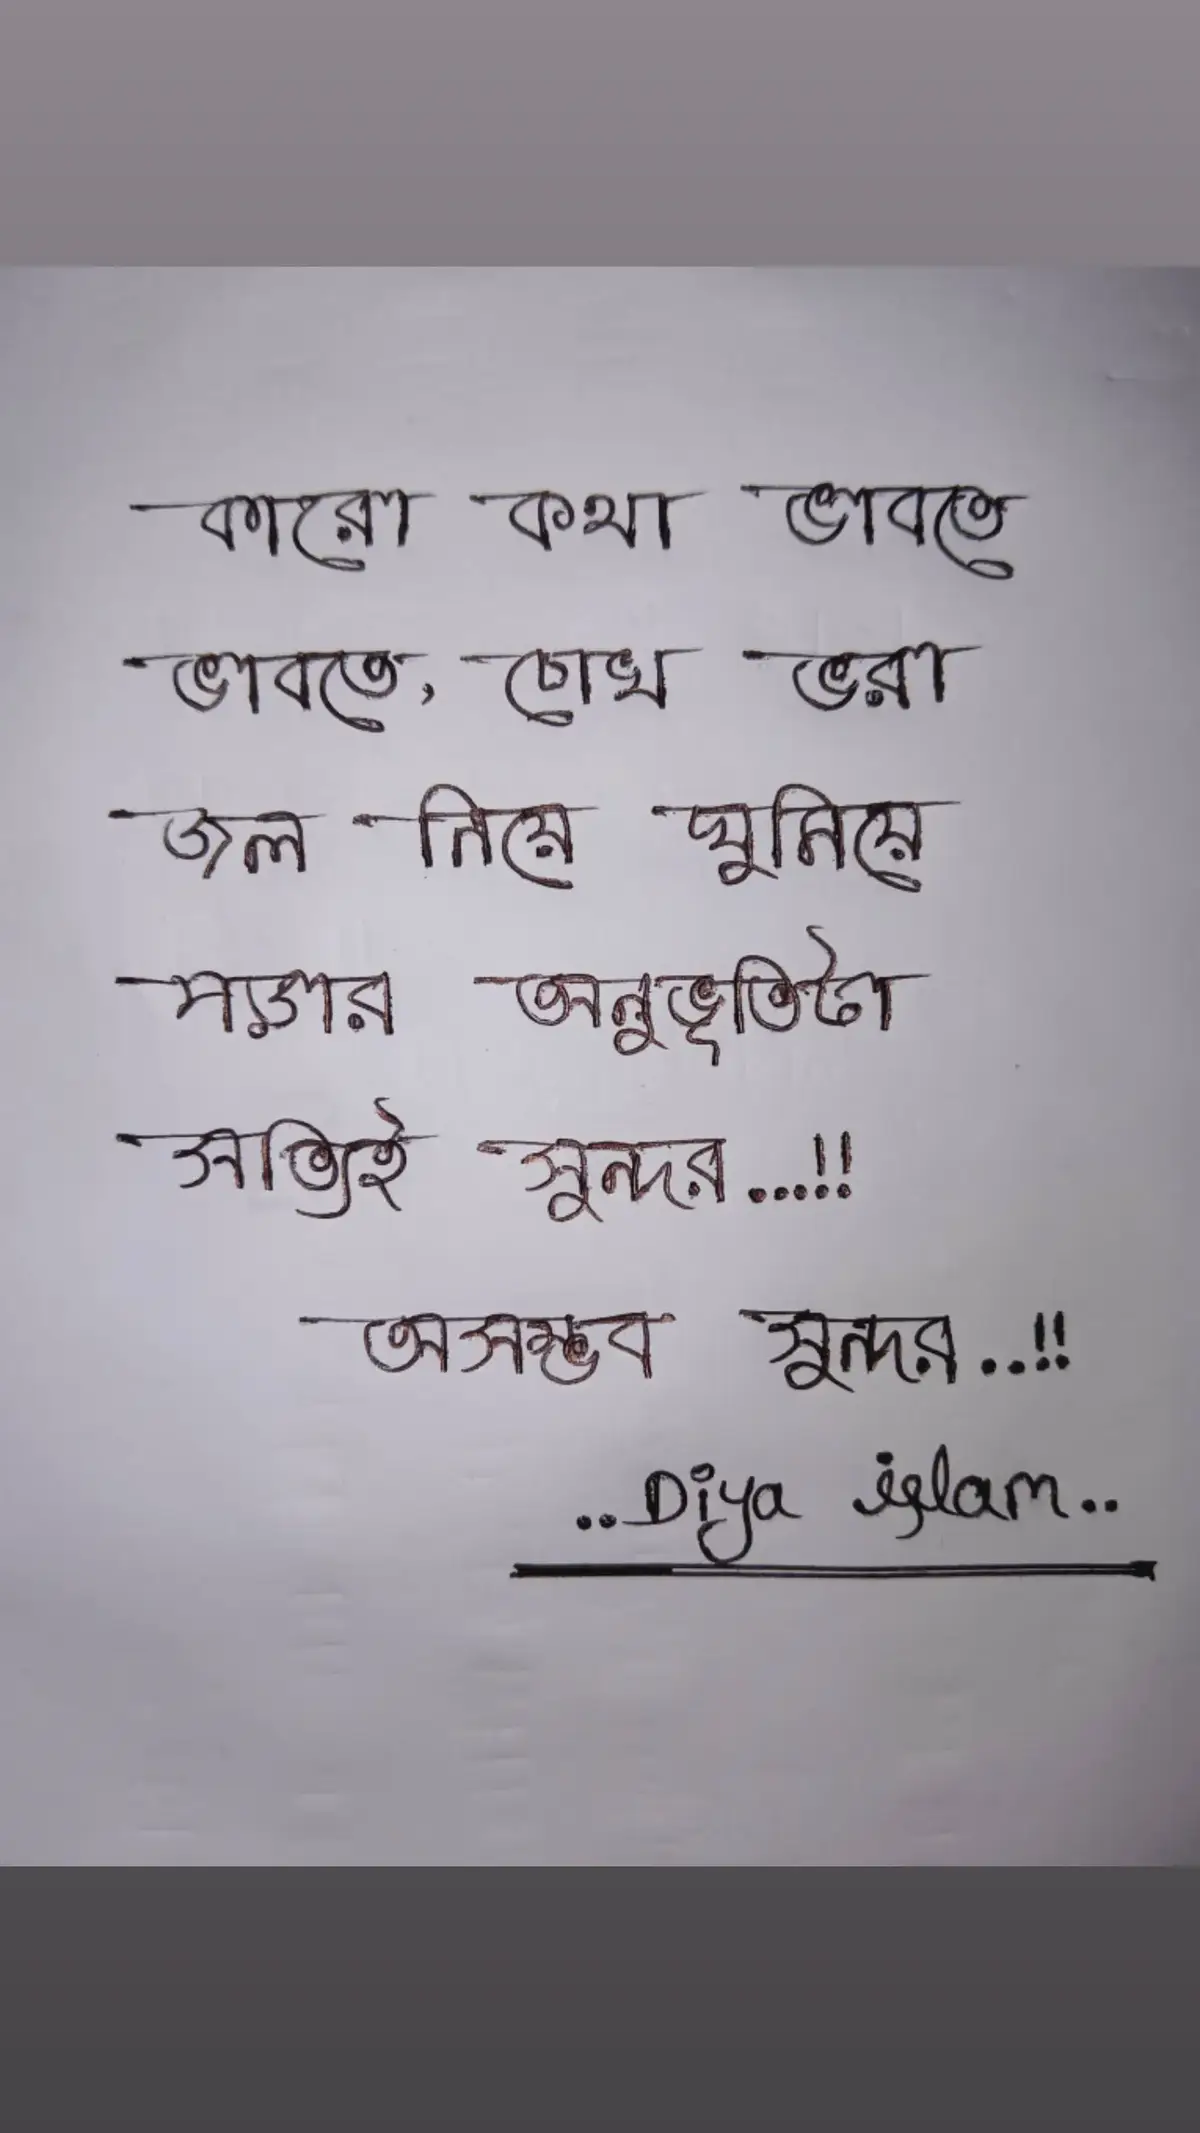 কারো কথা ভাবতে
ভাবতে, চোখ ভরা
জল নিয়ে ঘুমিয়ে
পড়ার অনুভূতিটা
সত্যিই সুন্দর...!!
অসম্ভব সুন্দর..!!
..Diya islam..